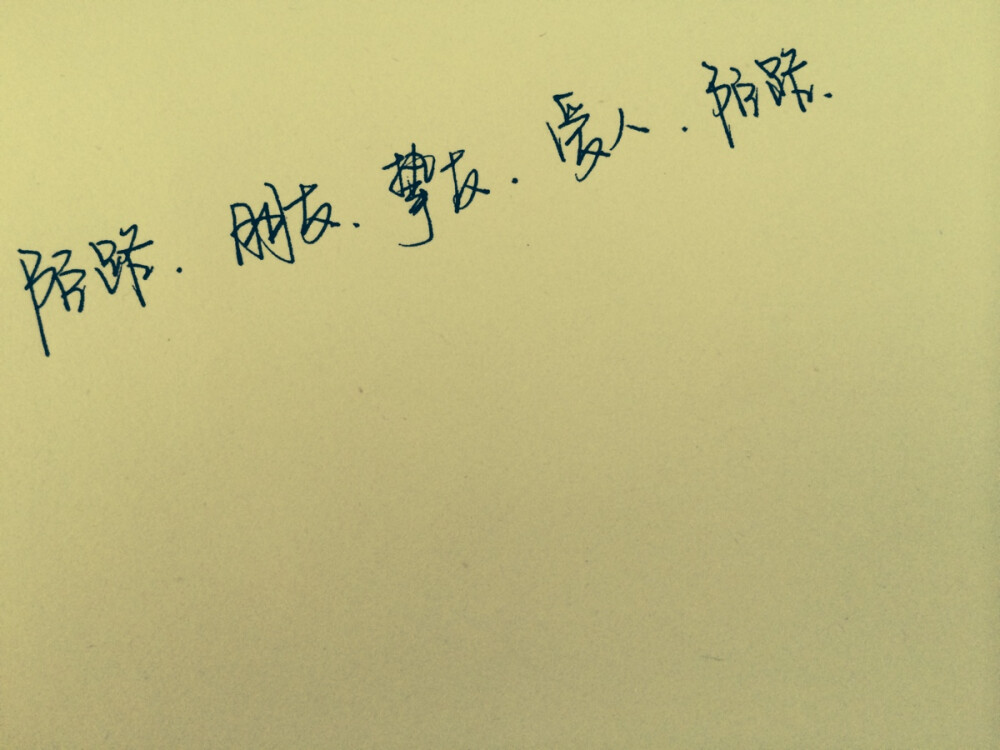 陌路.朋友.挚友.爱人.陌路.